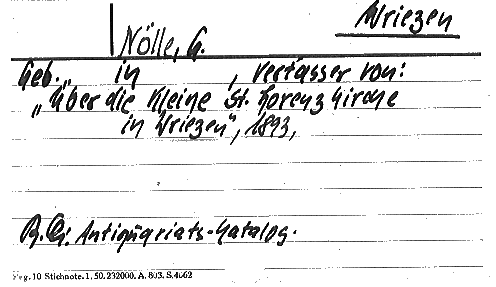 Wriezen
Nölle, G.
Geb.„ in , Verfasser von:
„Über die Kleine St. Lorenzkirche
in Wriezen", 1893,
Antiquariats-Katalog.
Freg. 10 Stichnote. 1. 50. 232000. A. 803. S. 4062